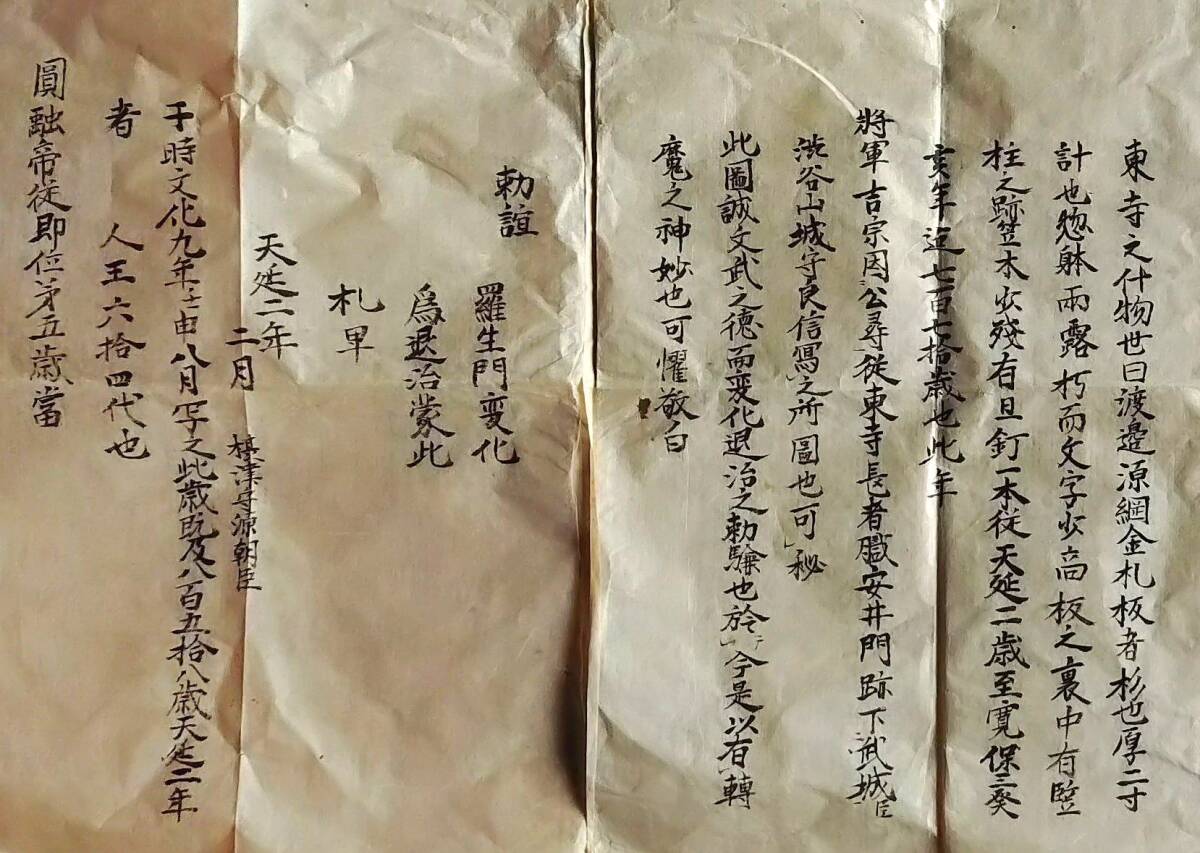 東寺之什物世曰渡邉源綱金札板者杉也厚二寸
計也惣躰雨露朽而文字少高板之裏中有竪
柱之跡笠木少殘有且釘一本従天延二歳至寛保三癸
亥年迄七百七拾歳也此年
將軍吉宗因公尋従東寺長者職安井門跡下武城臣
渋谷山城守良信寫之所圖也可秘
此圖誠文武之德而変化退治之勅驗也於于今是以有轉
魔之神妙也可懼敬白
勅諠
羅生門変化
為退治蒙此
札畢
天延二年
二月
摂津守源朝臣
于時文化九年壬申八月写之此歳既及八百五拾八歳天延二年
者 人王六拾四代也
圓融帝従即位㐧五歳當